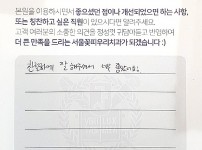 본원을 이용하시면서 좋으셨던 점이나 개선되었으면 하는 사항,
또는 칭찬하고 싶은 직원이 있으시다면 말려주세요.
고객 여러분의 소중한 의견을 정성껏 귀담아듣고 반영하여
더 큰 만족을 드리는 서울꽃피우리치과가 되겠습니다 :)
친절하게 잘 해주셔서 너무 좋았어요.